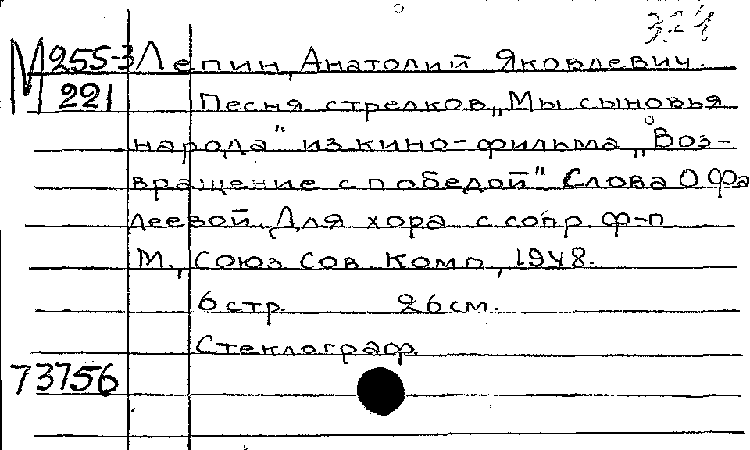 324
М 255-3 Лепин, Анатолий Яковлевич.
221 Песня стрелков „Мы сыновья
народа" из кино-фильма „Воз-
вращение с победой". Слова О Фа
деевой. Для хора с сопр. ф-п
М., Союз Сов. Комп., 1948.
6 стр. 26 см.
Стеклограф.
73756